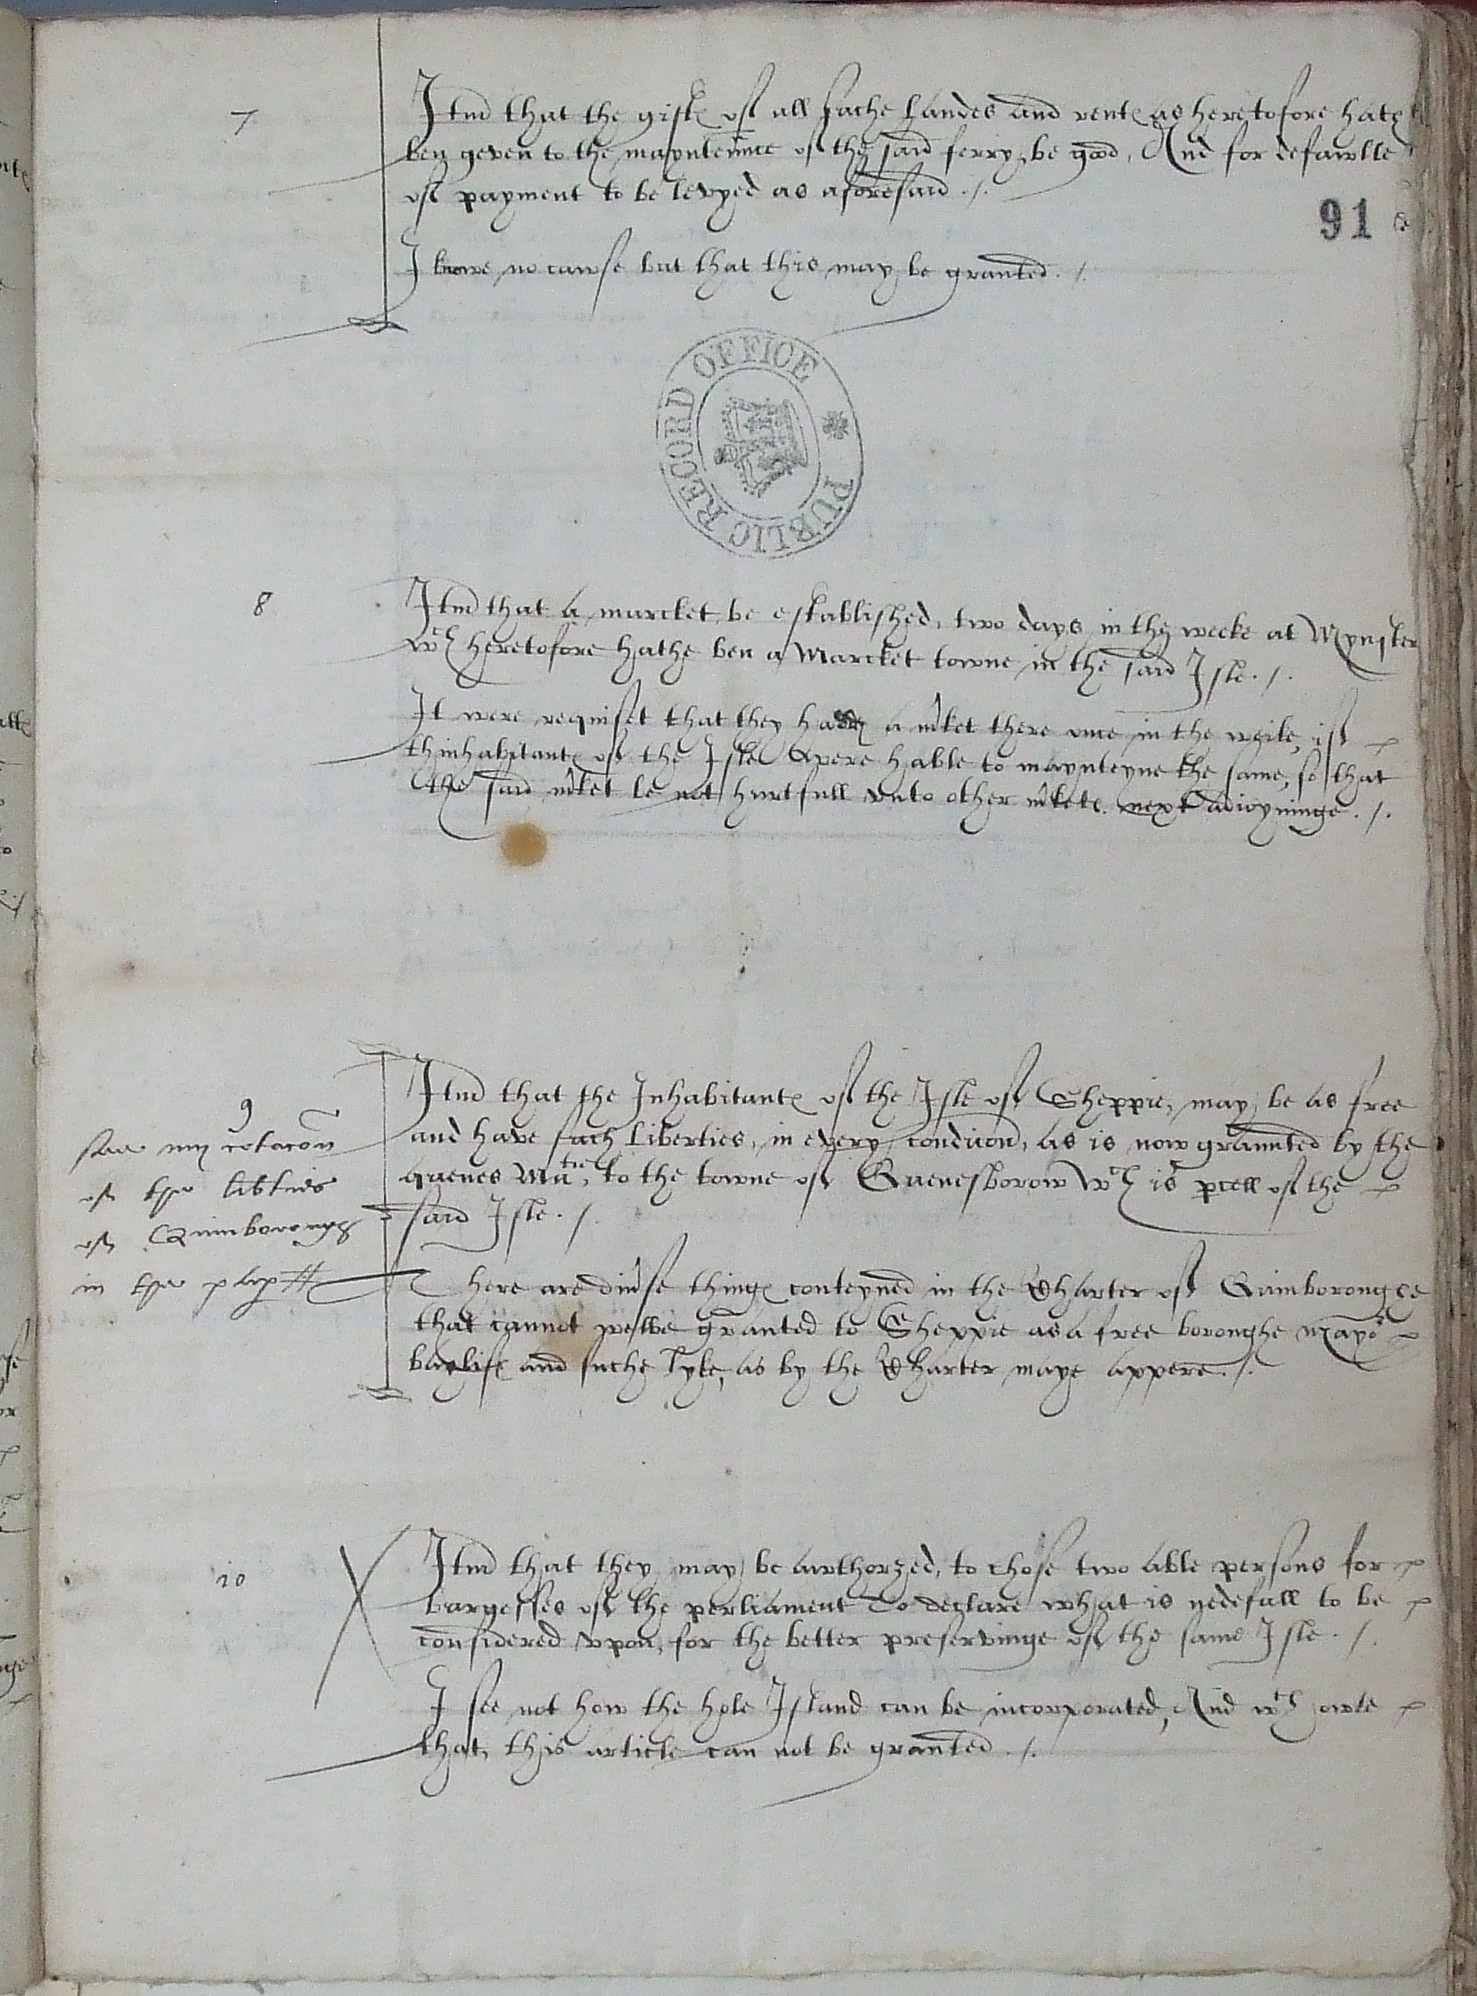 7
Itm̄ that the gift of all suche landes and rent as heretofore hathe
ben geven to the mayntenñce of the said ferry, be good, And for defawlte
of payment to be levyed as aforesaid ./.
91
I knowe no cawse but that this may be granted ./.
PUBLIC RECORD OFFICE
8
Itm̄ that a marcket be established, two days in the weeke at Mynster
wch heretofore hathe ben a Marcket towne in the said Isle ./.
It were requiset that they hadd a m̃ket there once in the weike, if
thinhabitant of the Isle were hable to maynteyne the same, so that
the said m̃ket be not hurtfull unto other m̃kete next adioyninge ./.
9
of the lib̃ties
of Quinborough
in the
Itm̄ that the Inhabitant of the Isle of Sheppie, may be as free
and have such Liberties, in every condicion, as is now graunted by the
quenes Matie, to the towne of Quenesborow wch is pcell of the
said Isle ./.
There are div̾se thing conteyned in the Charter of Quinboroughe
that cannot welbe granted to Sheppie as a free boroughe mayor
baylife and suche lyke, as by the Charter maye appere ./.
10
Itm̄ that they may be awthorzed, to chose two able persons for
burgesses of the perliament to declare what is nedefull to be
considered vpon, for the better preservinge of the same Isle ./.
I see not how the hole Island can be incorporated, And wch owte
that, this article can not be granted ./.